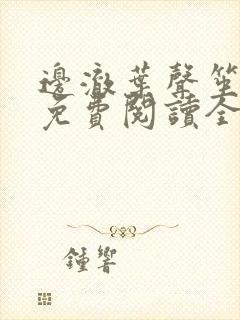 邊澈葉聲笙
免費閱讀全
鍾響